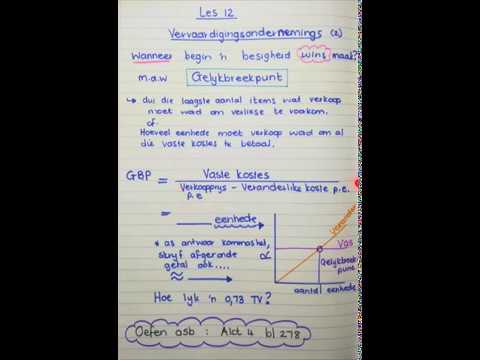 Les 12
Vervaardigingsondernemings (2)
Wanneer begin 'n besigheid wins maak?
m.a.w Gelykbreekpunt
↳ dui die laagste aantal items wat verkoop
moet word om verliese te voorkom.
of
Hoeveel eenhede moet verkoop word om al
die vaste kostes te betaal.
GBP = Vaste kostes
Verkoopprys - Veranderlike koste p.e.
p.e
= eenhede
* as antwoord kommas het,
skryf afgeronde
getal ook....
≈
R
Verander
Vas
Gelykbreek
punt
aantal eenhede
Hoe lyk 'n 0,73 TV?
Oefen asb : Akt 4 bl 278